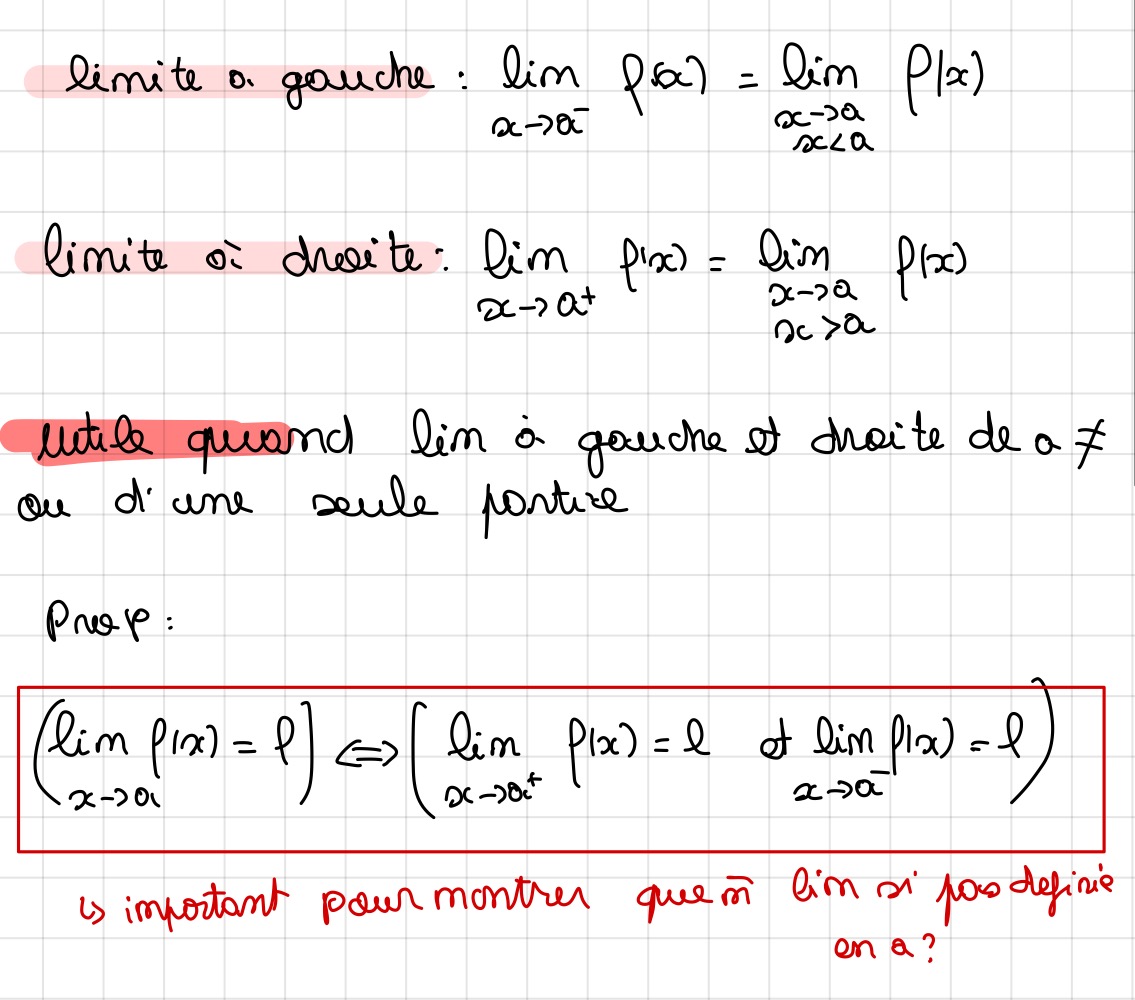 limite à gauche : lim f(x) = lim f(x)
x→a⁻ x→a
x<a
limite à droite : lim f(x) = lim f(x)
x→a⁺ x→a
x>a
utile quand lim à gauche et droite de a ≠
ou d'une seule partie
Prop :
(lim f(x) = l) ⇔ (lim f(x) = l et lim f(x) = l)
x→a x→a⁺ x→a⁻
↳ important pour montrer que m̄ lim si pas definie
en a ?